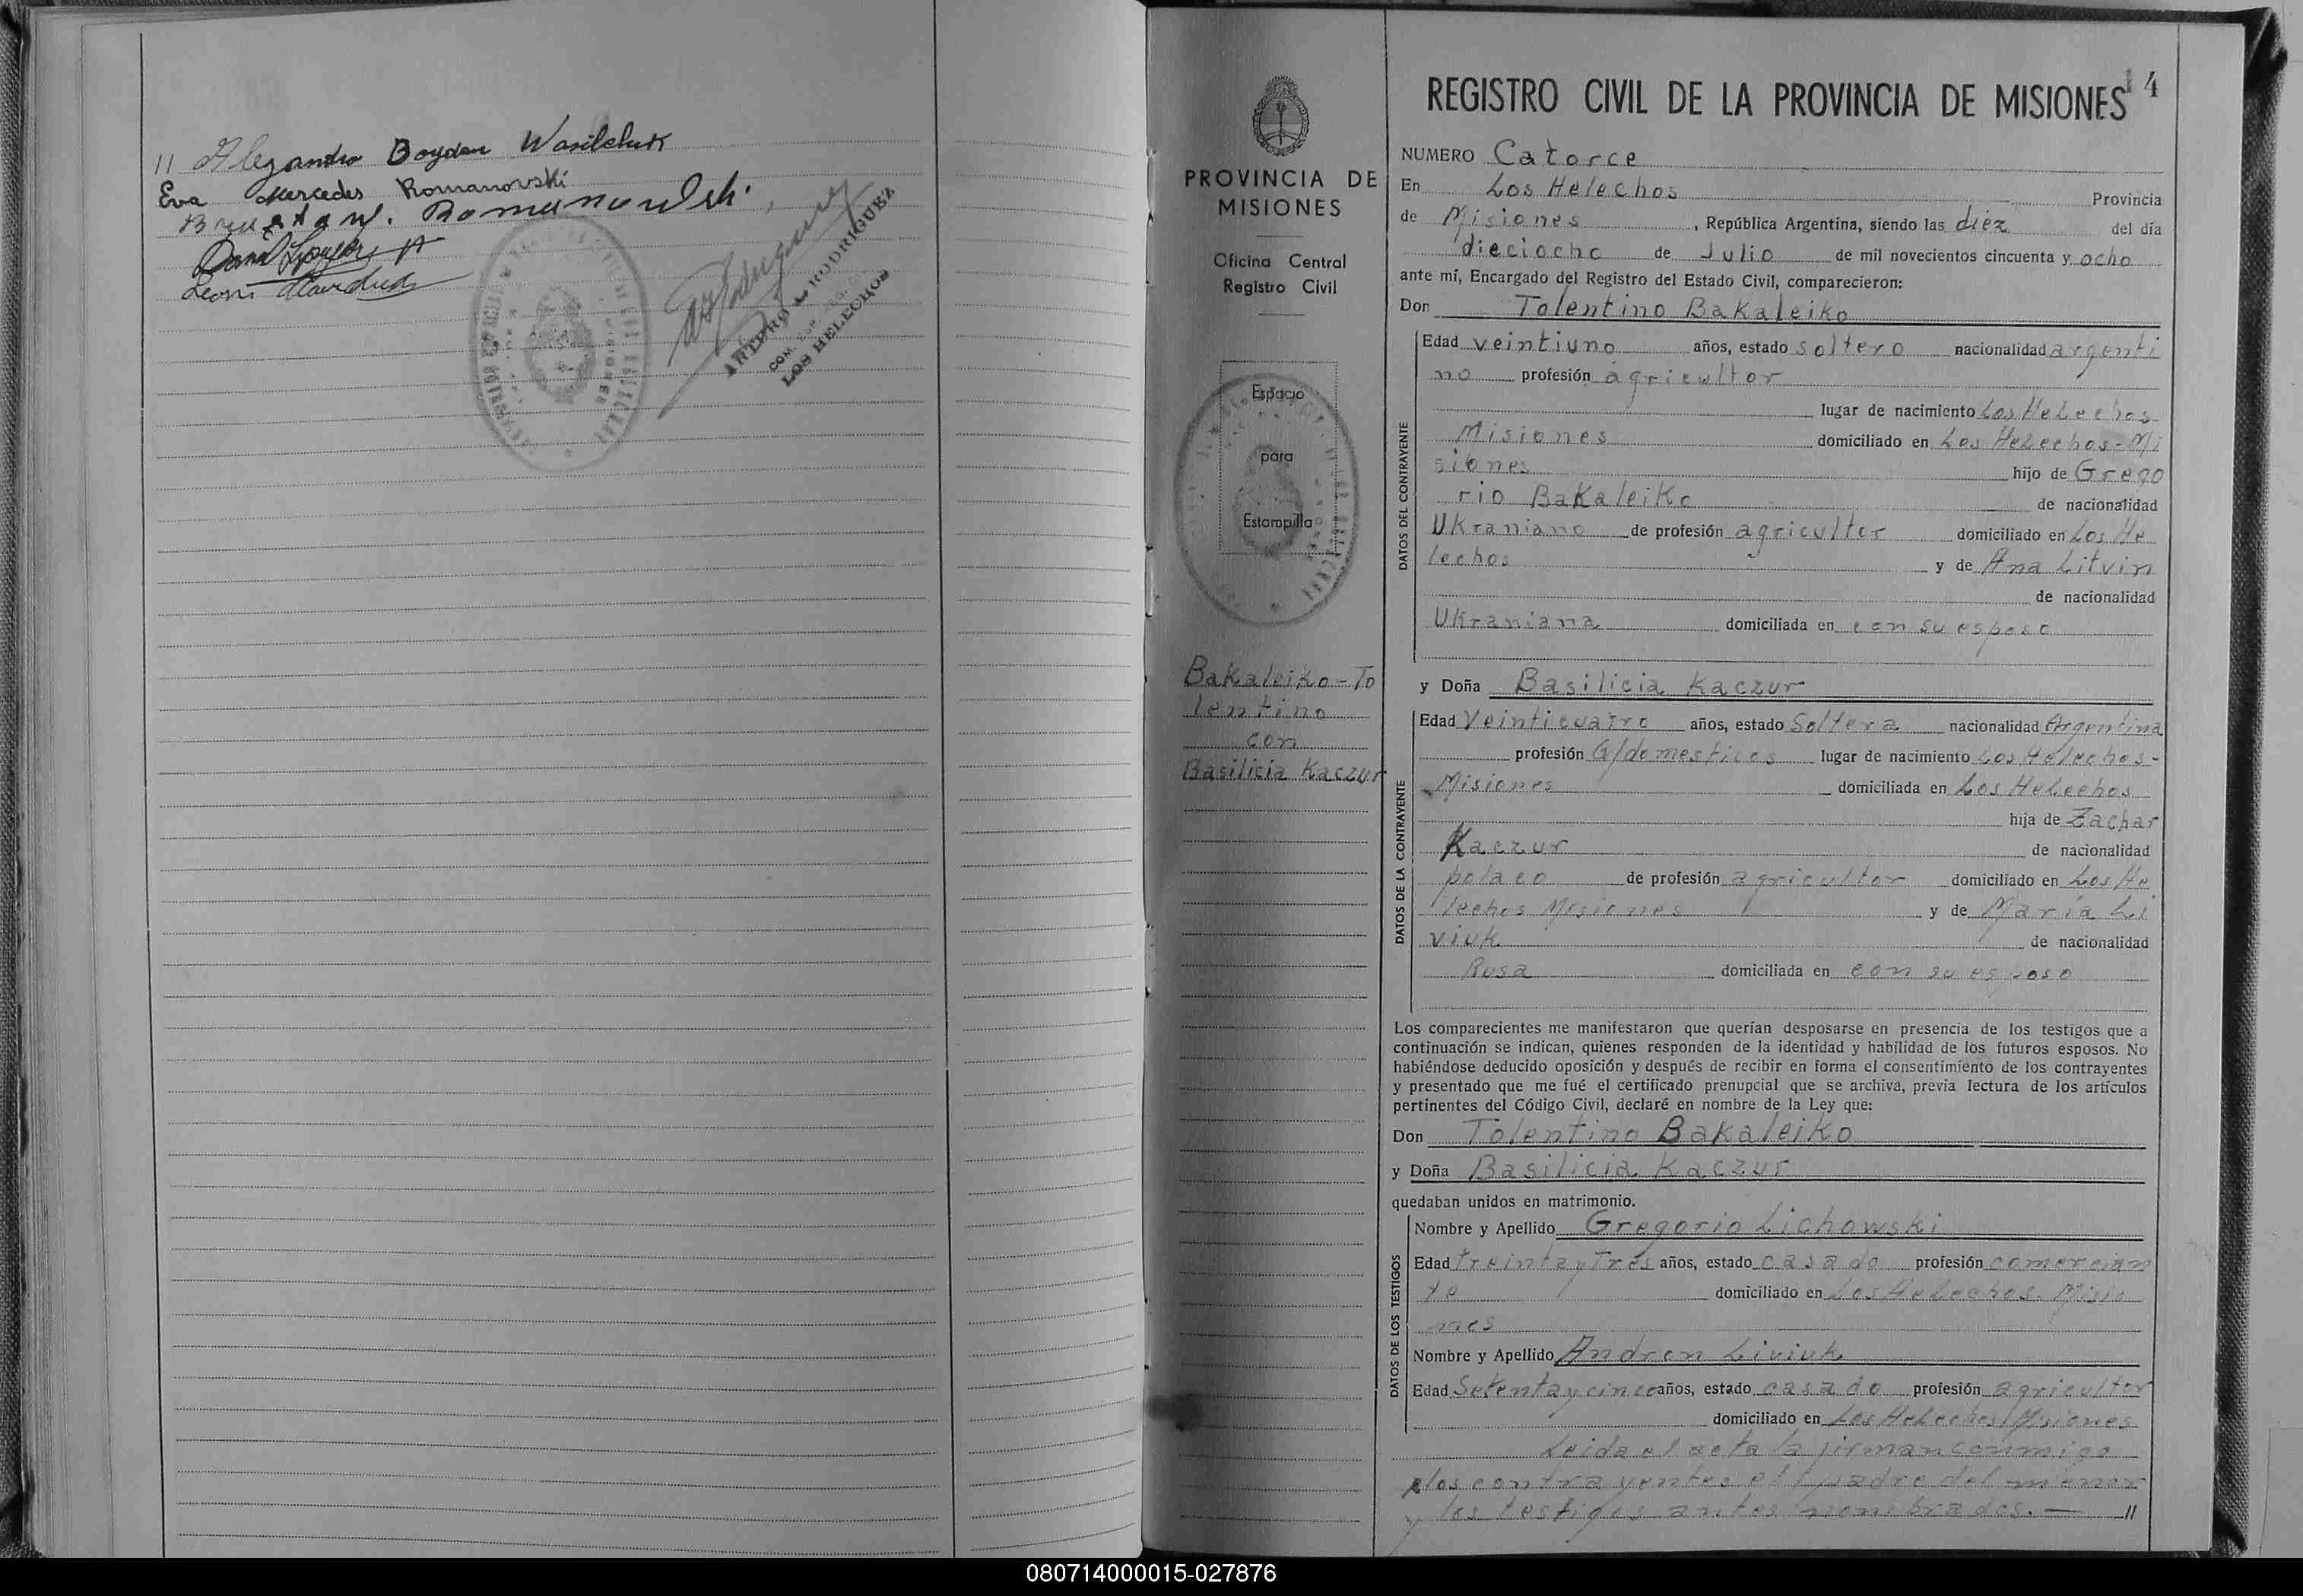 11 Alejandro Bogdan Wasilchuk
Eva Mercedes Romanovski
Romanowski
ANTERO RODRIGUEZ
LOS HELECHOS
PROVINCIA DE
MISIONES
Oficina Central
Registro Civil
Espacio
para
Estampilla
Bakaleiko - To
lentino
con
Basilicia Kaczur
14
REGISTRO CIVIL DE LA PROVINCIA DE MISIONES
NUMERO Catorce
En Los Helechos Provincia
de Misiones, República Argentina, siendo las diez del día
dieciocho de Julio de mil novecientos cincuenta y ocho
ante mí, Encargado del Registro del Estado Civil, comparecieron:
Don Tolentino Bakaleiko
DATOS DEL CONTRAYENTE
Edad veintiuno años, estado soltero nacionalidad argenti
no profesión agricultor
lugar de nacimiento Los Helechos-
Misiones domiciliado en Los Helechos-Mi
siones hijo de Grego
rio Bakaleiko de nacionalidad
Ukraniano de profesión agricultor domiciliado en Los He
lechos y de Ana Litvin
de nacionalidad
Ukraniana domiciliada en con su esposo
y Doña Basilicia Kaczur
DATOS DE LA CONTRAYENTE
Edad Veinticuatro años, estado Soltera nacionalidad Argentina
profesión Q/domesticos lugar de nacimiento Los Helechos-
Misiones domiciliada en Los Helechos
hija de Zachar
Kaczur de nacionalidad
polaco de profesión agricultor domiciliado en Los He
lechos Misiones y de María Li
viuk de nacionalidad
Rusa domiciliada en con su esposo
Los comparecientes me manifestaron que querían desposarse en presencia de los testigos que a
continuación se indican, quienes responden de la identidad y habilidad de los futuros esposos. No
habiéndose deducido oposición y después de recibir en forma el consentimiento de los contrayentes
y presentado que me fué el certificado prenupcial que se archiva, previa lectura de los artículos
pertinentes del Código Civil, declaré en nombre de la Ley que:
Don Tolentino Bakaleiko
y Doña Basilicia Kaczur
quedaban unidos en matrimonio.
DATOS DE LOS TESTIGOS
Nombre y Apellido Gregorio Lichowski
Edad treinta y Tres años, estado casado profesión comercian
te domiciliado en Los Helechos. Misio
nes
Nombre y Apellido Andron Liviuk
Edad Setenta y cinco años, estado casado profesión agricultor
domiciliado en Los Helechos/Misiones
Leida el acta la firman conmigo
los contrayentes el padre del menor
y los testigos antes nombrados. — //
080714000015-027876